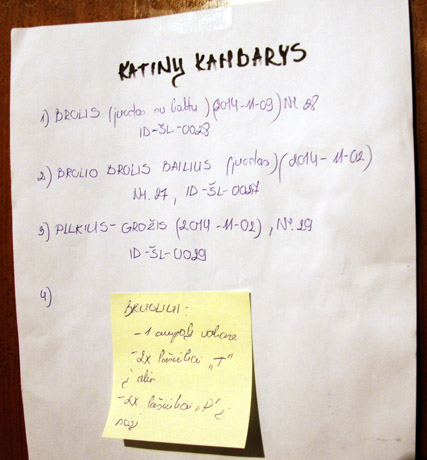 KATINŲ KAMBARYS
1) BROLIS (juodas su baltu) (2014-11-09) Nr. 28
ID-ŠL-0028
2) BROLIO BROLIS BAILIUS (juodas) (2014-11-02)
Nr. 27, ID-ŠL-0027
3) PILKIUS-GROŽIS (2014-11-02), Nr. 29
ID-ŠL-0029
4)
- 1 vakare
- 2x lašiukai „T"
į akis
- 2x lašiukai į